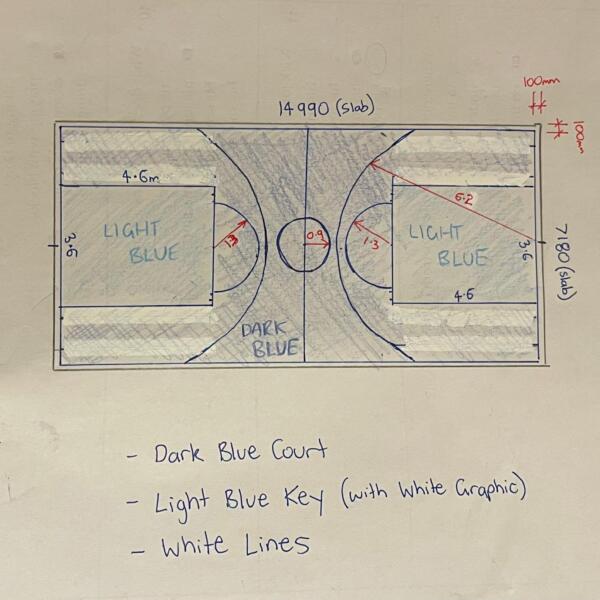 100mm
14990 (slab)
100mm
4.6m
6.2
LIGHT
BLUE
3.6
1.3
0.9
1.3
LIGHT
BLUE
3.6
7180 (slab)
4.6
DARK
BLUE
- Dark Blue Court
- Light Blue Key (with White Graphic)
- White Lines